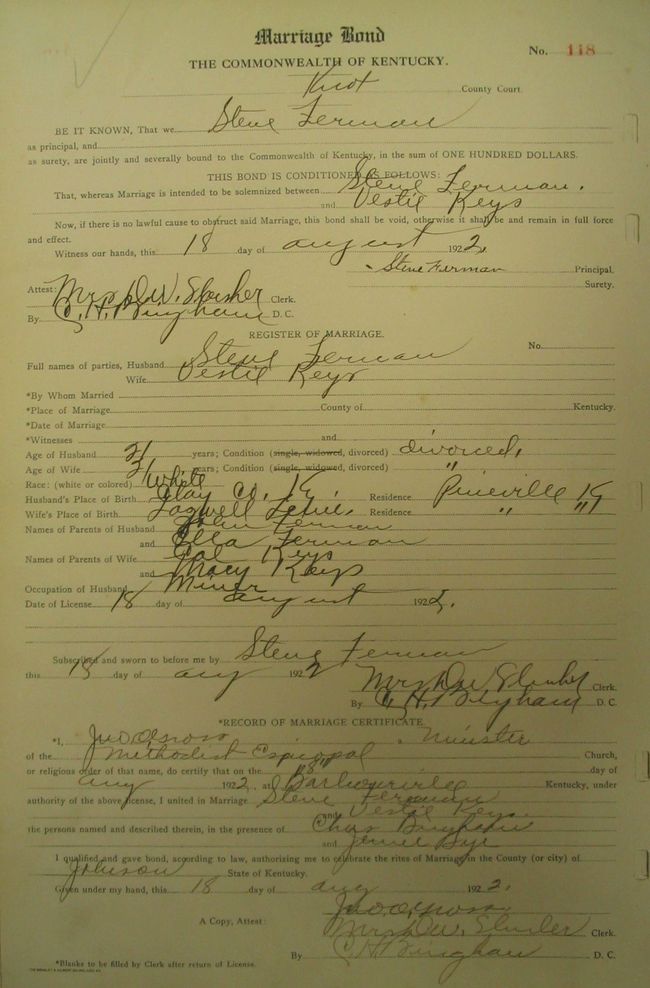 Marriage Bond
No. 118
THE COMMONWEALTH OF KENTUCKY.
Knox County Court.
BE IT KNOWN, That we Steve Ferman
as principal, and
as surety, are jointly and severally bound to the Commonwealth of Kentucky, in the sum of ONE HUNDRED DOLLARS.
THIS BOND IS CONDITIONED AS FOLLOWS:
That, whereas Marriage is intended to be solemnized between Steve Ferman.
and Vestie Keys
Now, if there is no lawful cause to obstruct said Marriage, this bond shall be void, otherwise it shall be and remain in full force
and effect.
Witness our hands, this 18 day of august 1922.
Steve Ferman Principal.
Surety.
Attest: Mrs D.W. Clerk.
By C. H. Bingham D. C.
REGISTER OF MARRIAGE.
No.
Full names of parties, Husband Steve Ferman
Wife Vestie Keys
*By Whom Married
*Place of Marriage County of Kentucky.
*Date of Marriage
*Witnesses and
Age of Husband 21 years; Condition (single, widowed, divorced) divorced.
Age of Wife 21 years; Condition (single, widowed, divorced) "
Race: (white or colored) White
Husband's Place of Birth Clay Co. Ky. Residence Pineville Ky
Wife's Place of Birth Residence " "
Names of Parents of Husband John Ferman
and Ella Ferman
Names of Parents of Wife Keys
and Macy Keys
Occupation of Husband Miner
Date of License 18 day of august 1922.
Subscribed and sworn to before me by Steve Ferman
this 18 day of aug 1922
Mrs D.W. Clerk.
By C. H. Bingham D. C.
*RECORD OF MARRIAGE CERTIFICATE.
*I, Jno. O. Gross. Minister
of the Methodist Episcopal Church,
or religious order of that name, do certify that on the 18" day of
aug 1922, at Barbourville Kentucky, under
authority of the above license, I united in Marriage Steve Ferman
and Vestie Keys.
the persons named and described therein, in the presence of Chas Bingham
and Jennie
I qualified and gave bond, according to law, authorizing me to celebrate the rites of Marriage in the County (or city) of
Johnson State of Kentucky.
Given under my hand, this 18 day of aug 1922.
Jno. O. Gross.
A Copy, Attest: Mrs D.W. Clerk.
By C. H. Bingham D. C.
*Blanks to be filled by Clerk after return of License.